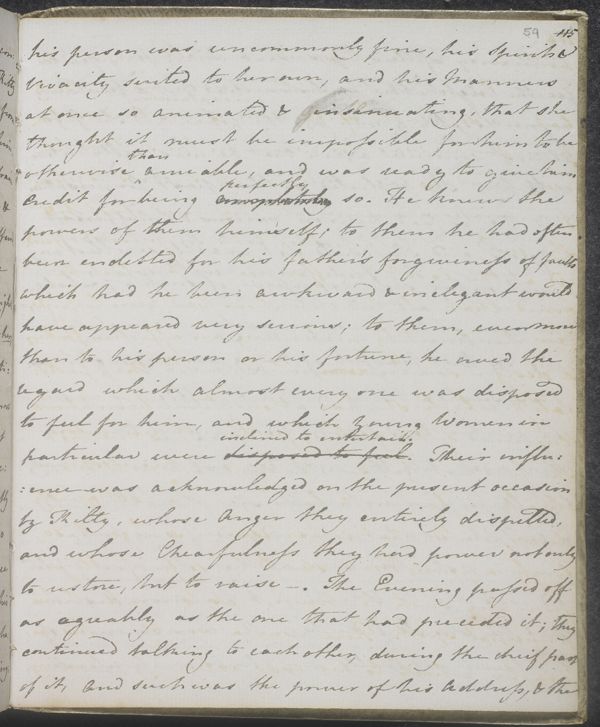 59 115
his person was uncommonly fine, his Spirits &
vivacity suited to her own, and his Manners
at once so animated & insinuating, that she
thought it must be impossible for him to be
otherwise than amiable, and was ready to give him
credit for being perfectly so. He knew the
powers of them himself; to them he had often
been endebted for his father's forgiveness of faults
which had he been awkward & inelegant would
have appeared very serious; to them, even more
than to his person or his fortune, he owed the
regard which almost every one was disposed
to feel for him, and which Young Women in
inclined to entertain.
particular were disposed to feel. Their influ:
:ence was acknowledged on the present occasion
by Kitty, whose Anger they entirely dispelled,
and whose Chearfulness they had power not only
to restore, but to raise —. The Evening passed off
as agreably as the one that had preceded it; they
continued talking to each other, during the cheif part
of it, and such was the power of his Address, & the